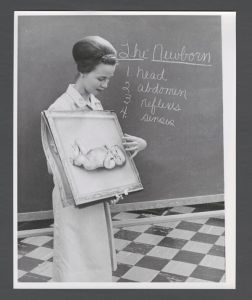 The Newborn
1 head
2 abdomen
3 reflexes
4 senses